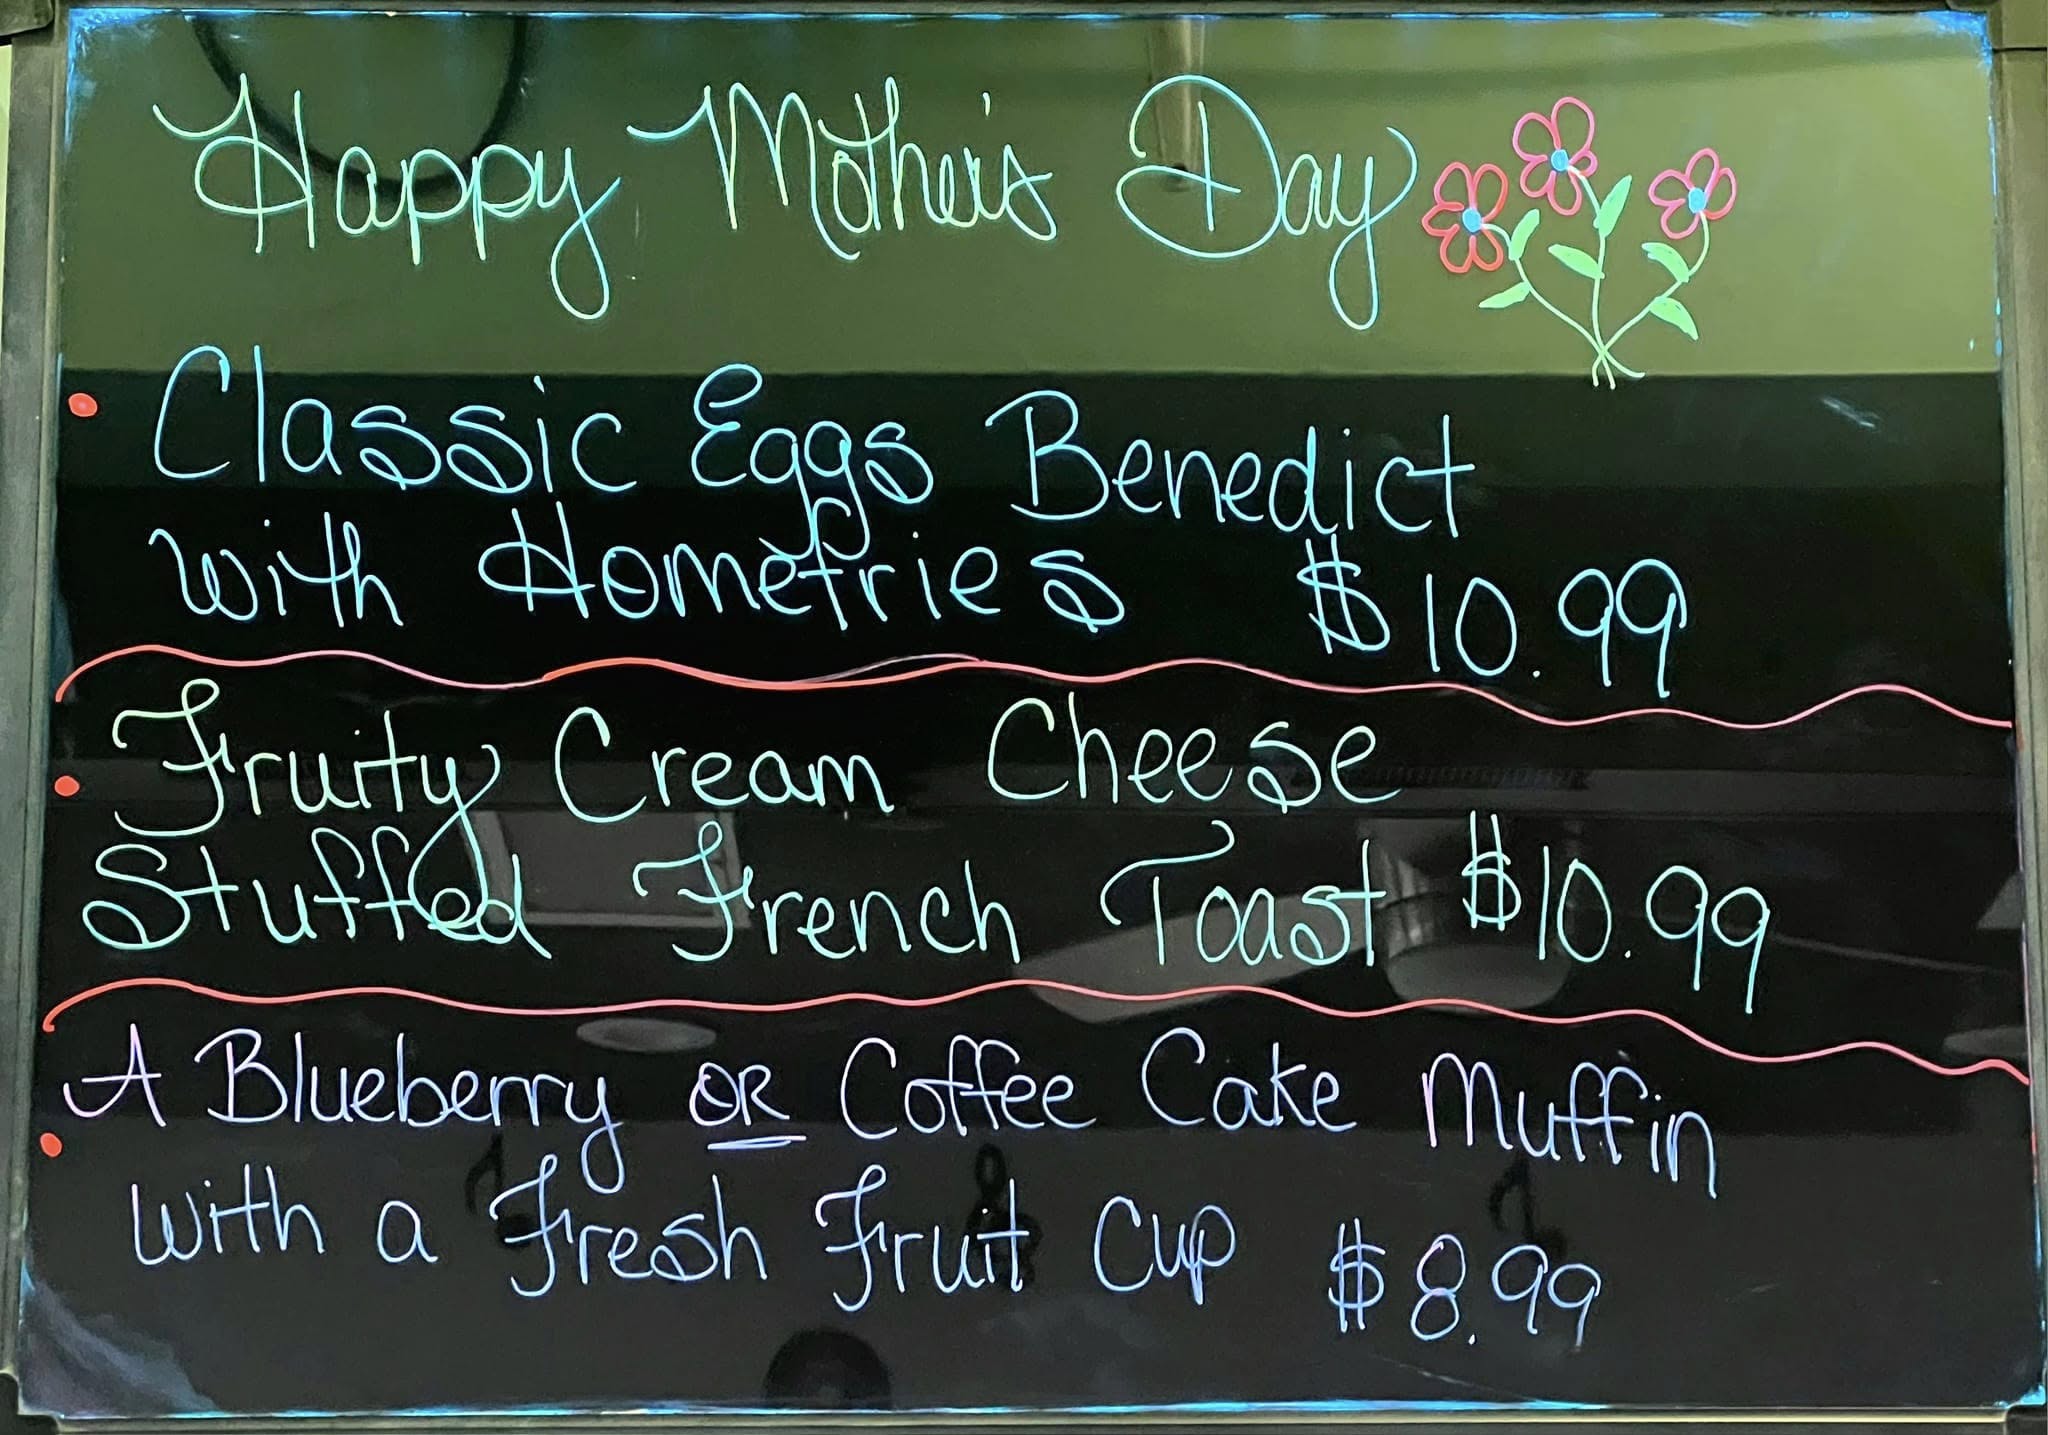 Happy Mother's Day
• Classic Eggs Benedict
with Homefries $10.99
• Fruity Cream Cheese
Stuffed French Toast $10.99
• A Blueberry OR Coffee Cake Muffin
with a Fresh Fruit Cup $8.99